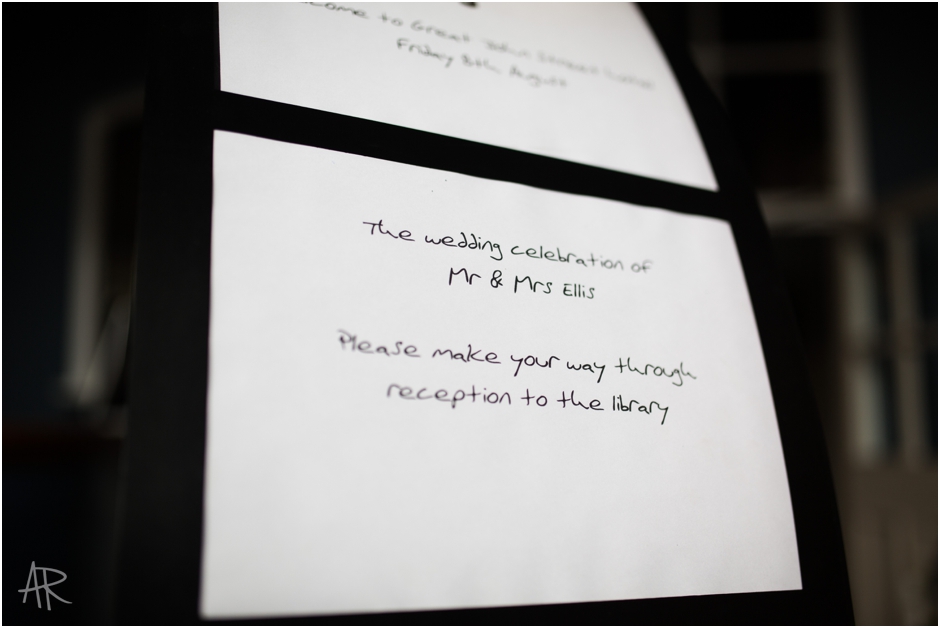 come to Great John Street
Friday 8th August
The wedding celebration of
Mr & Mrs Ellis
Please make your way through
reception to the library
AR